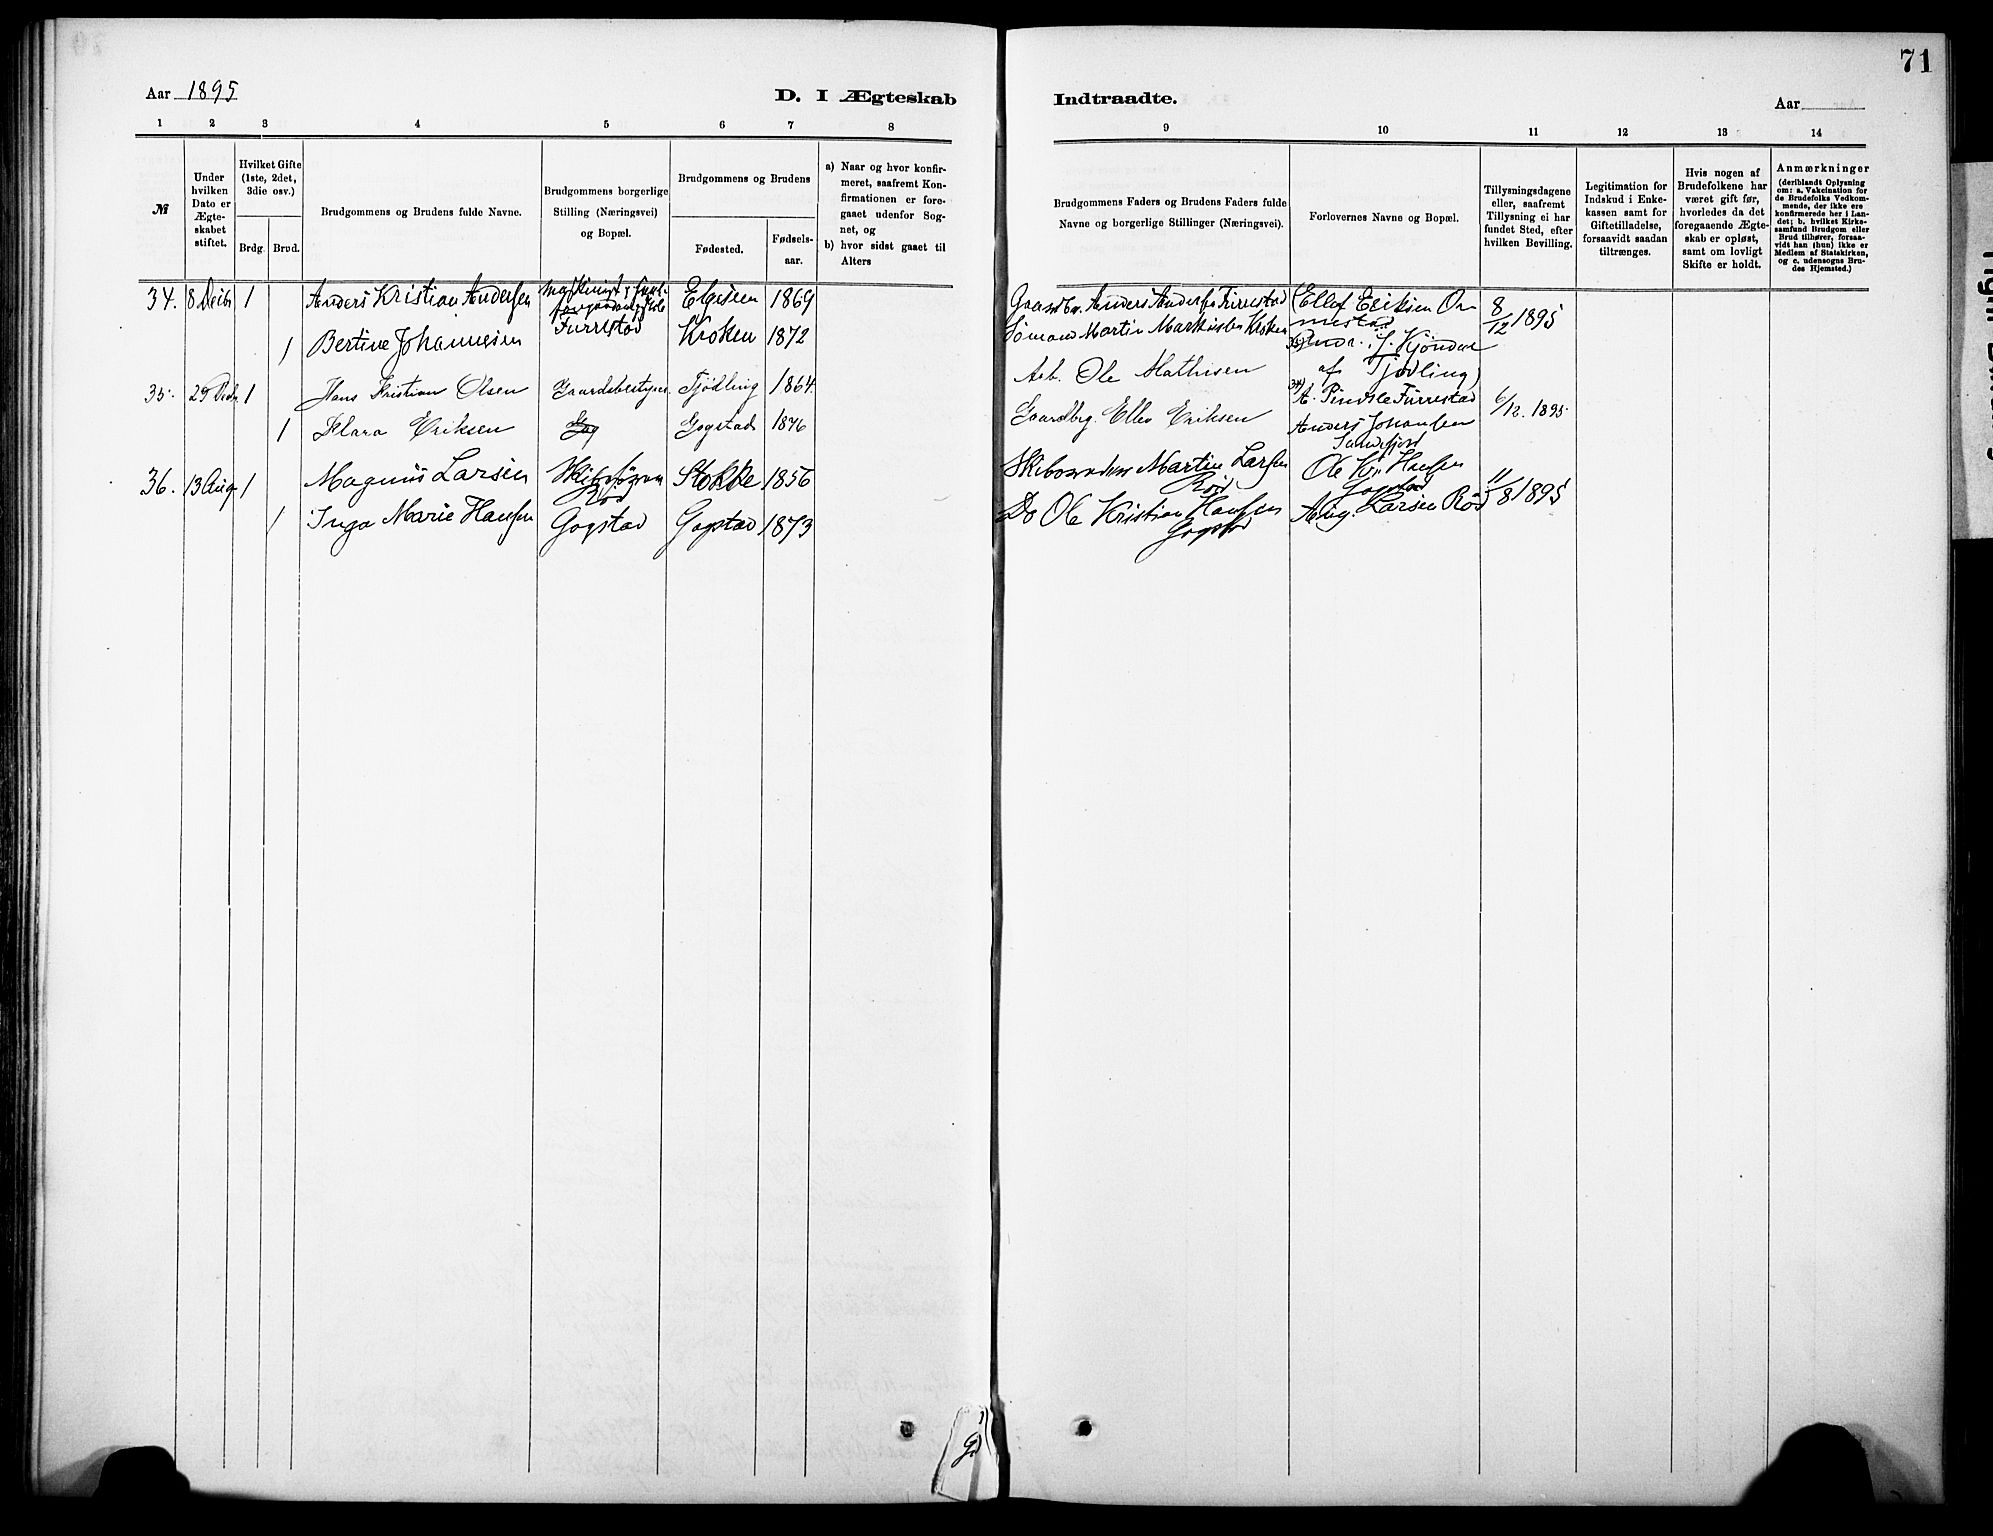 71
Aar 1895
D. I Ægteskab
Indtraadte.
Aar
1 2 3 4 5 6 7 8
9 10 11 12 13 14
№
Under hvilken Dato er Ægteskabet stiftet.
Hvilket Gifte (1ste, 2det, 3die osv.)
Brdg. Brud.
Brudgommens og Brudens fulde Navne.
Brudgommens borgerlige Stilling (Næringsvei) og Bopæl.
Brudgommens og Brudens
Fødested.
Fødsels-aar.
a) Naar og hvor konfir-
meret, saafremt Kon-
firmationen er fore-
gaaet udenfor Sog-
net, og
b) hvor sidst gaaet til
Alters
Brudgommens Faders og Brudens Faders fulde
Navne og borgerlige Stillinger (Næringsvei).
Forlovernes Navne og Bopæl.
Tillysningsdagene
eller, saafremt
Tillysning ei har
fundet Sted, efter
hvilken Bevilling.
Legitimation for
Indskud i Enke-
kassen samt for
Giftetilladelse,
forsaavidt saadan
tiltrænges.
Hvis nogen af
Brudefolkene har
været gift før,
hvorledes da det
foregaaende Ægte-
skab er opløst,
samt om lovligt
Skifte er holdt.
Anmærkninger
(deriblandt Oplysning
om: a. Vakcination for
de Brudefolks Vedkom-
mende, der ikke ere
konfirmerede her i Lan-
det; b. hvilket Kirke-
samfund Brudgom eller
Brud tilhører, forsaa-
vidt han (hun) ikke er
Medlem af Statskirken,
og c. udensogns Bru-
des Hjemsted.)
34. 8 Decbr 1 Anders Kristian Andersen Furrestad 1869 Gaardbr. Anders Andersen Furrestad Ellef Eriksen Or- 8/12 1895
1 Bertine Johannesen Kroken 1872 Sømand Martin Kroken
af Tjødling)
35. 29 1 Hans Kristian Olsen Gaardsbestyrer Tjødling 1864 Arb. Ole Mathisen Furrestad 6/12. 1895
1 Klara Eriksen Gogstad 1876 Gaardbrg. Ellev Eriksen Anders Johansen
Sandefjord
36. 13 Aug 1 Magnus Larsen Rød Stokke 1856 Martin Larsen Rød Ole Kr. Hansen Gogstad 11/8 1895
1 Inga Marie Hansen Gogstad Gogstad 1873 Do Ole Kristian Hansen Gogstad Aug. Larsen Rød